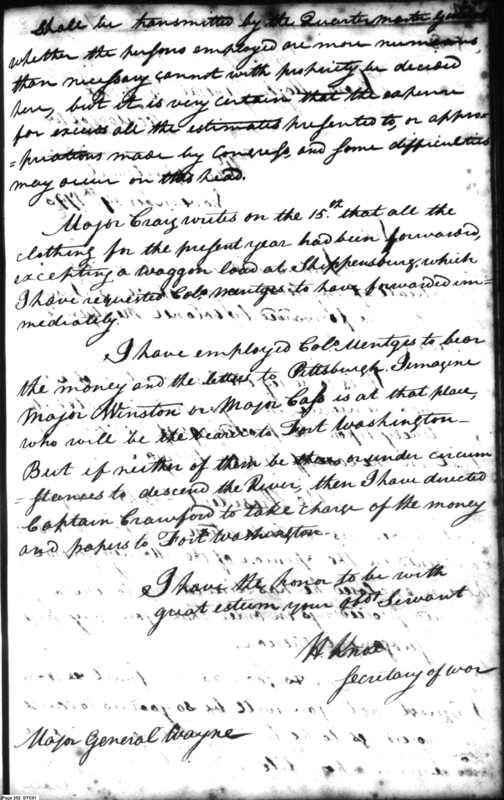 Shall be transmitted by the Quarter master General
whether the persons employed are more numerous,
than necessary cannot with propriety be decided
here, but it is very certain that the expense
far exceeds all the estimates presented to, or appro
=priations made by Congress, and some difficulties
may occur on this head.
Major Craig writes on the 15.th that all the
clothing for the present year had been forwarded,
excepting a waggon load at Shippensburg, which
I have requested Colo. Mentges to have forwarded im-
mediately.
I have employed Colo. Mentges to bear
the money and the letters to Pittsburgh. I imagine
Major Winston or Major Cass is at that place,
who will be the bearer to Fort Washington—
But if neither of them be there or under circum
=stances to descend the River, then I have directed
Captain Crawford to take charge of the money
and papers to Fort Washington—
I have the honor to be with
great esteem your obdt. Servant
H Knox
Secretary of war
Major General Wayne
Page 252 DTC01